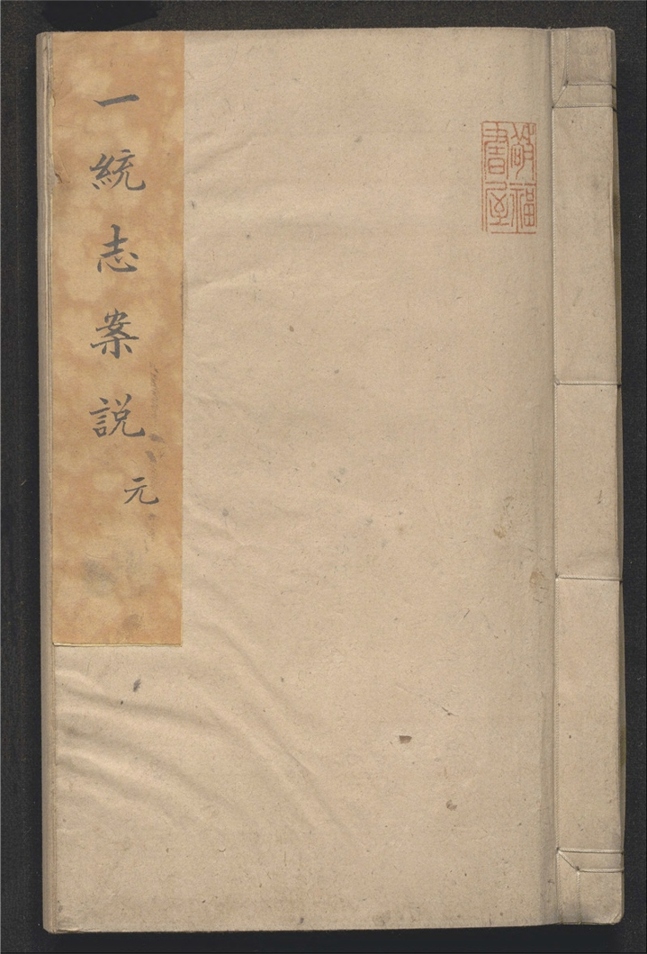 一統志案說
元
節福
書屋